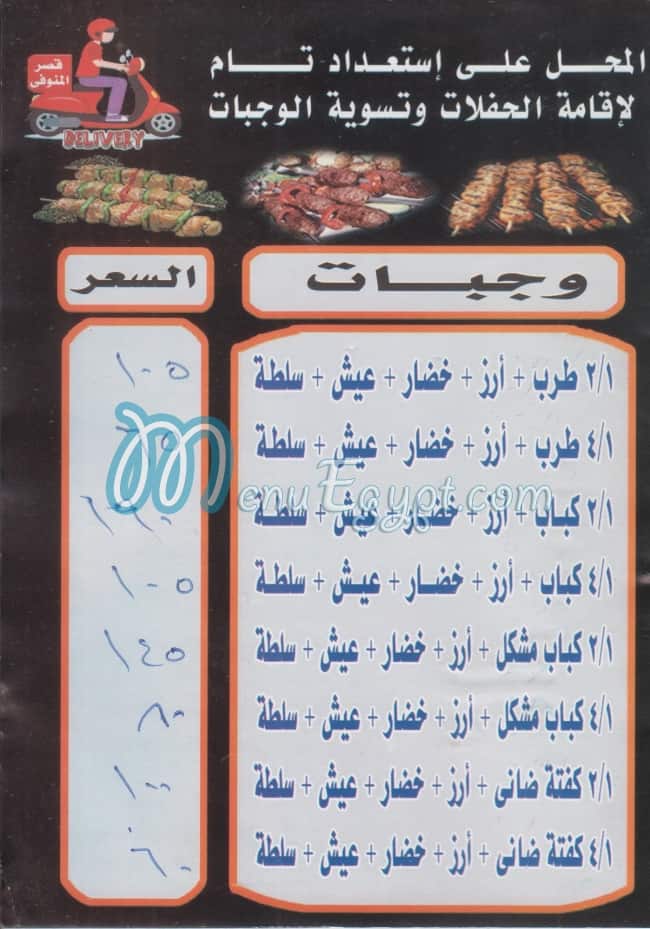 قصر
المنوفى
DELIVERY
المحل على إستعداد تام
لإقامة الحفلات وتسوية الوجبات
وجبات
السعر
٢/١ طرب + أرز + خضار + عيش + سلطة
١٠٥
٤/١ طرب + أرز + خضار + عيش + سلطة
MenuEgypt.com
٢/١ كباب + أرز + خضار + عيش + سلطة
٤/١ كباب + أرز + خضار + عيش + سلطة
١٠٥
٢/١ كباب مشكل + أرز + خضار + عيش + سلطة
١٤٥
٤/١ كباب مشكل + أرز + خضار + عيش + سلطة
٨٠
٢/١ كفتة ضانى + أرز + خضار + عيش + سلطة
١٠٠
٤/١ كفتة ضانى + أرز + خضار + عيش + سلطة
٦٠